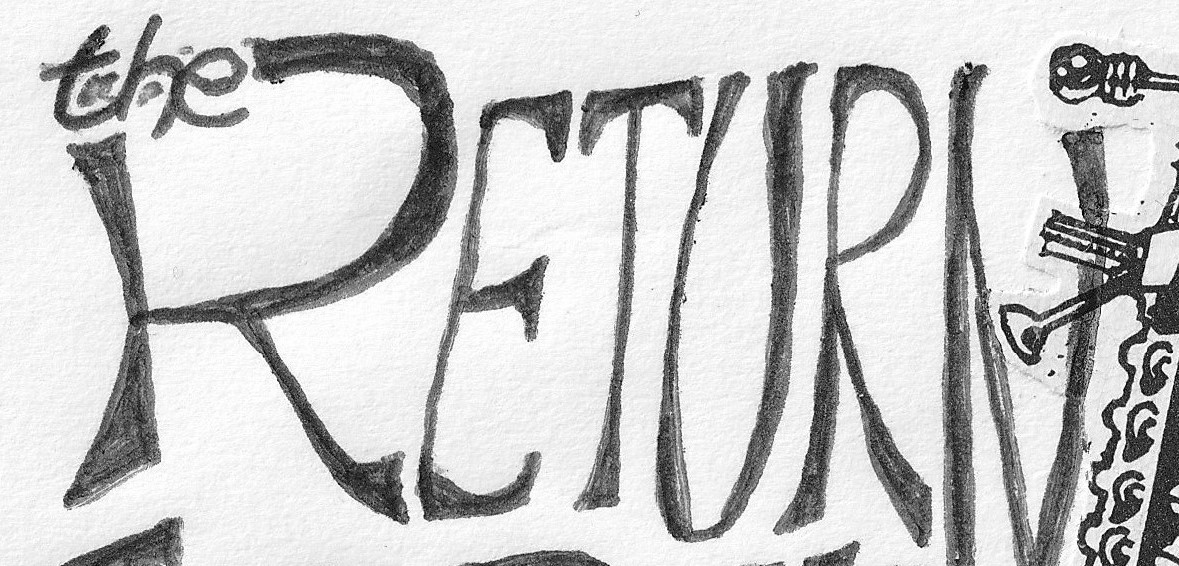 the
RETURN